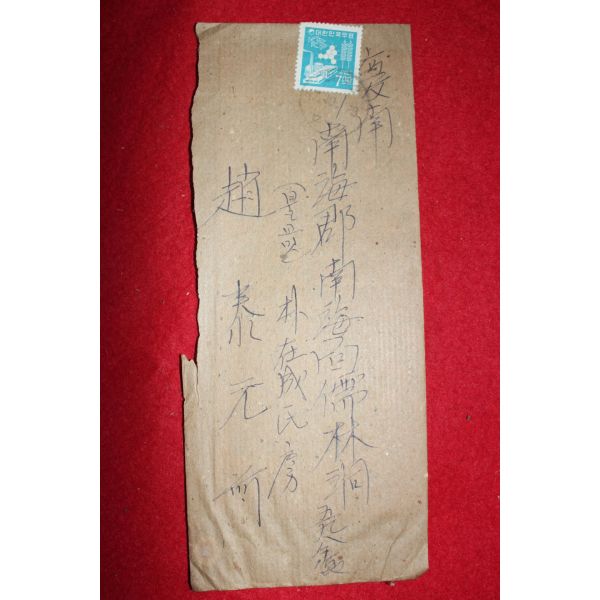 대한민국우표
7원
慶南
南海郡 南海面 儒林洞
朴在成氏房
趙泰元